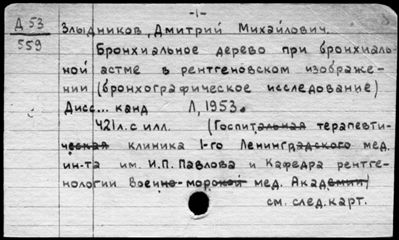 -1-
Д 53
559
Злыдников, Дмитрий Михайлович.
Бронхиальное дерево при бронхиаль-
ной астме в рентгеновском изображе-
нии (бронхографическое исследование)
Дисс... канд Л, 1953.
421л. с илл. (Госпитальная терапевти-
ческая клиника 1-го Ленинградского мед.
ин-та им. И.П. Павлова и Кафедра рентге-
нологии Военно-морской мед. Академии)
см. след. карт.